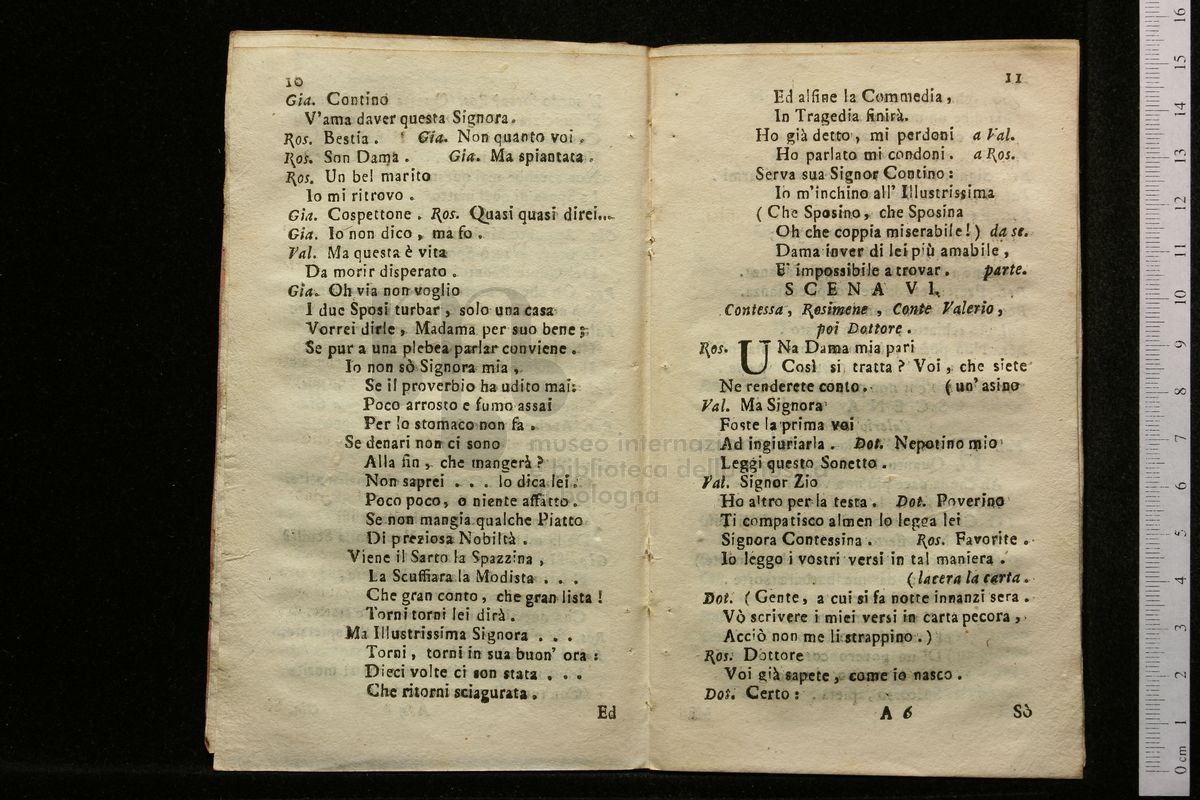 10
Gia. Contino
V'ama daver questa Signora.
Ros. Bestia. Gia. Non quanto voi.
Ros. Son Dama. Gia. Ma spiantata.
Ros. Un bel marito
Io mi ritrovo.
Gia. Cospettone. Ros. Quasi quasi direi...
Gia. Io non dico, ma fo.
Val. Ma questa è vita
Da morir disperato.
Gia. Oh via non voglio
I due Sposi turbar, solo una casa
Vorrei dirle, Madama per suo bene;
Se pur a una plebea parlar conviene.
Io non sò Signora mia,
Se il proverbio ha udito mai:
Poco arrosto e fumo assai
Per lo stomaco non fa.
Se denari non ci sono
Alla fin, che mangerà?
Non saprei... lo dica lei.
Poco poco, o niente affatto.
Se non mangia qualche Piatto
Di preziosa Nobiltà.
Viene il Sarto la Spazzina,
La Scuffiara la Modista...
Che gran conto, che gran lista!
Torni torni lei dirà.
Ma Illustrissima Signora...
Torni, torni in sua buon' ora:
Dieci volte ci son stata...
Che ritorni sciagurata.
Ed
11
Ed alfine la Commedia,
In Tragedia finirà.
Ho già detto, mi perdoni a Val.
Ho parlato mi condoni. a Ros.
Serva sua Signor Contino:
Io m'inchino all' Illustrissima
(Che Sposino, che Sposina
Oh che coppia miserabile!) da se.
Dama inver di lei più amabile,
E' impossibile a trovar. parte.
SCENA VI.
Contessa, Rosimene, Conte Valerio,
poi Dottore.
Ros. UNa Dama mia pari
Così si tratta? Voi, che siete
Ne renderete conto. (un' asino
Val. Ma Signora
Foste la prima voi
Ad ingiuriarla. Dot. Nepotino mio
Leggi questo Sonetto.
Val. Signor Zio
Ho altro per la testa. Dot. Poverino
Ti compatisco almen lo legga lei
Signora Contessina. Ros. Favorite.
Io leggo i vostri versi in tal maniera.
(lacera la carta.
Dot. (Gente, a cui si fa notte innanzi sera.
Vò scrivere i miei versi in carta pecora,
Acciò non me li strappino.)
Ros. Dottore
Voi già sapete, come io nasco.
Dot. Certo:
A 6 Sò
museo internazi
e biblioteca della musica
bologna
16
15
14
13
12
11
10
9
8
7
6
5
4
3
2
1
0 cm